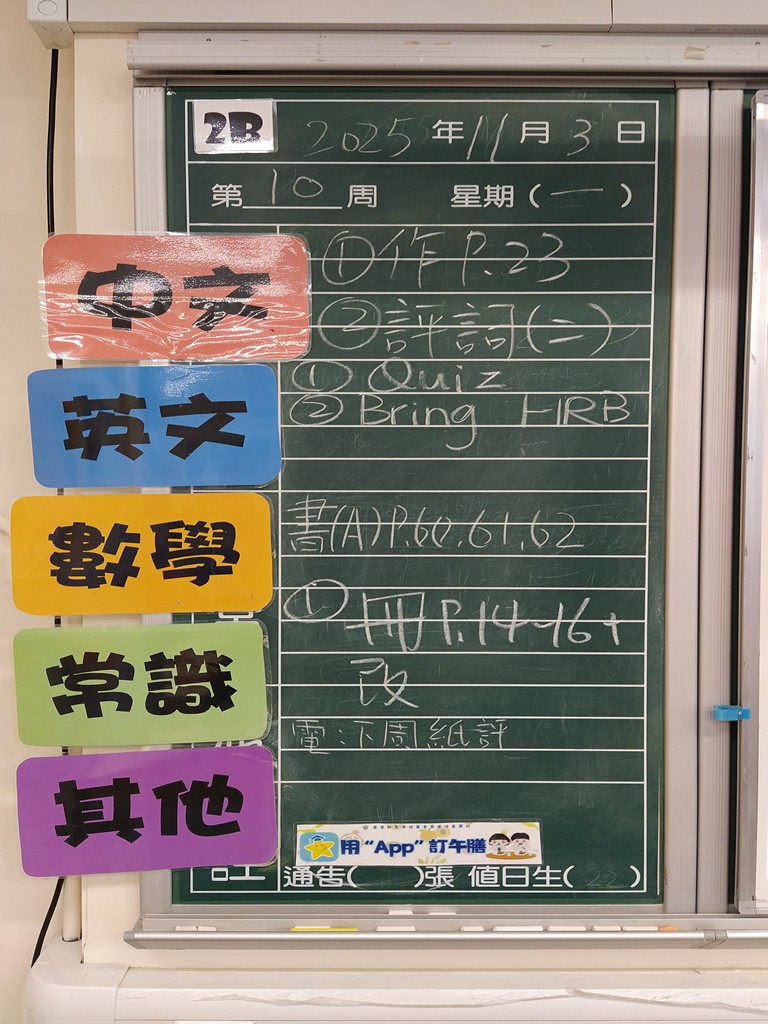 2B 2025年11月3日
第10周 星期(一)
中文
①作P.23
②評詞(二)
英文
① Quiz
② Bring HRB
數學
書(A)P.60.61.62
常識
① 冊P.14-16+
改
其他
電:下周紙評
用“App”訂午膳
通告( )張 值日生(22)